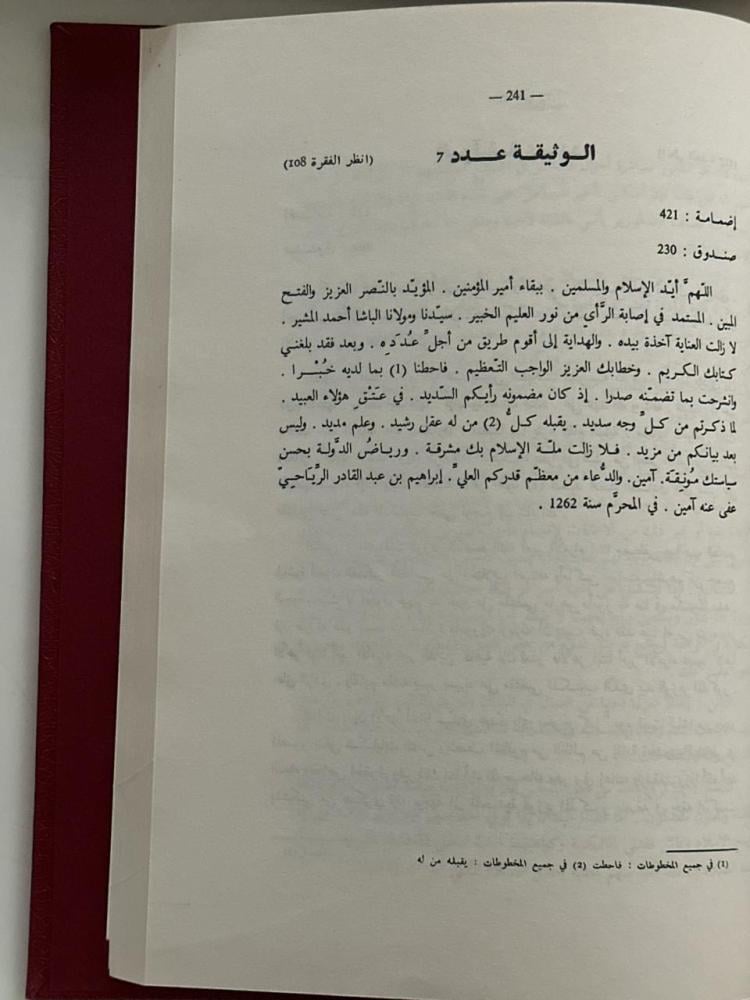 — 241 —
الـوثيقـة عـــدد 7 (انظر الفقرة 108)
إضمامـة : 421
صنـدوق : 230
اللّهمّ أيّـد الإسلام والمسلمين . ببقاء أمير المؤمنين . المؤيّـد بالنّصر العزيز والفتـح
المبين . المستمد في إصابة الرَّأي من نور العليم الخبير . سيّـدنا ومولانا الباشا أحمد المشير .
لا زالت العناية آخذة بيده . والهداية إلى أقوم طريق من أجلّ عُـدَدِه . وبعد فقد بلغني
كتابك الكـريم . وخطابك العزيز الواجب التّـعظيم . فاحطنا (1) بما لديه خُبْـــرا .
وانشرحت بما تضمّـنه صدرا . إذ كان مضمونه رأيكـم السّـديد . في عـتْـقِ هؤلاء العبيد .
لما ذكرتم من كـلّ وجه سديد . يقبله كـلُّ (2) من له عقل رشيد . وعلم مديد . وليس
بعد بيانكـم من مزيد . فـلا زالت ملّـة الإسلام بك مشرقـة . وريـاضُ الدَّولـة بحسن
سياستك مُونِـقـة. آمين. والدُّعاء من معظّـم قدركم العليّ. إبراهيم بن عبد القادر الرِّيَـاحيّ
عفى عنه آمين . في المحرَّم سنة 1262 .
(1) في جميع المخطوطات : فاحطت (2) في جميع المخطوطات : يقبله من له